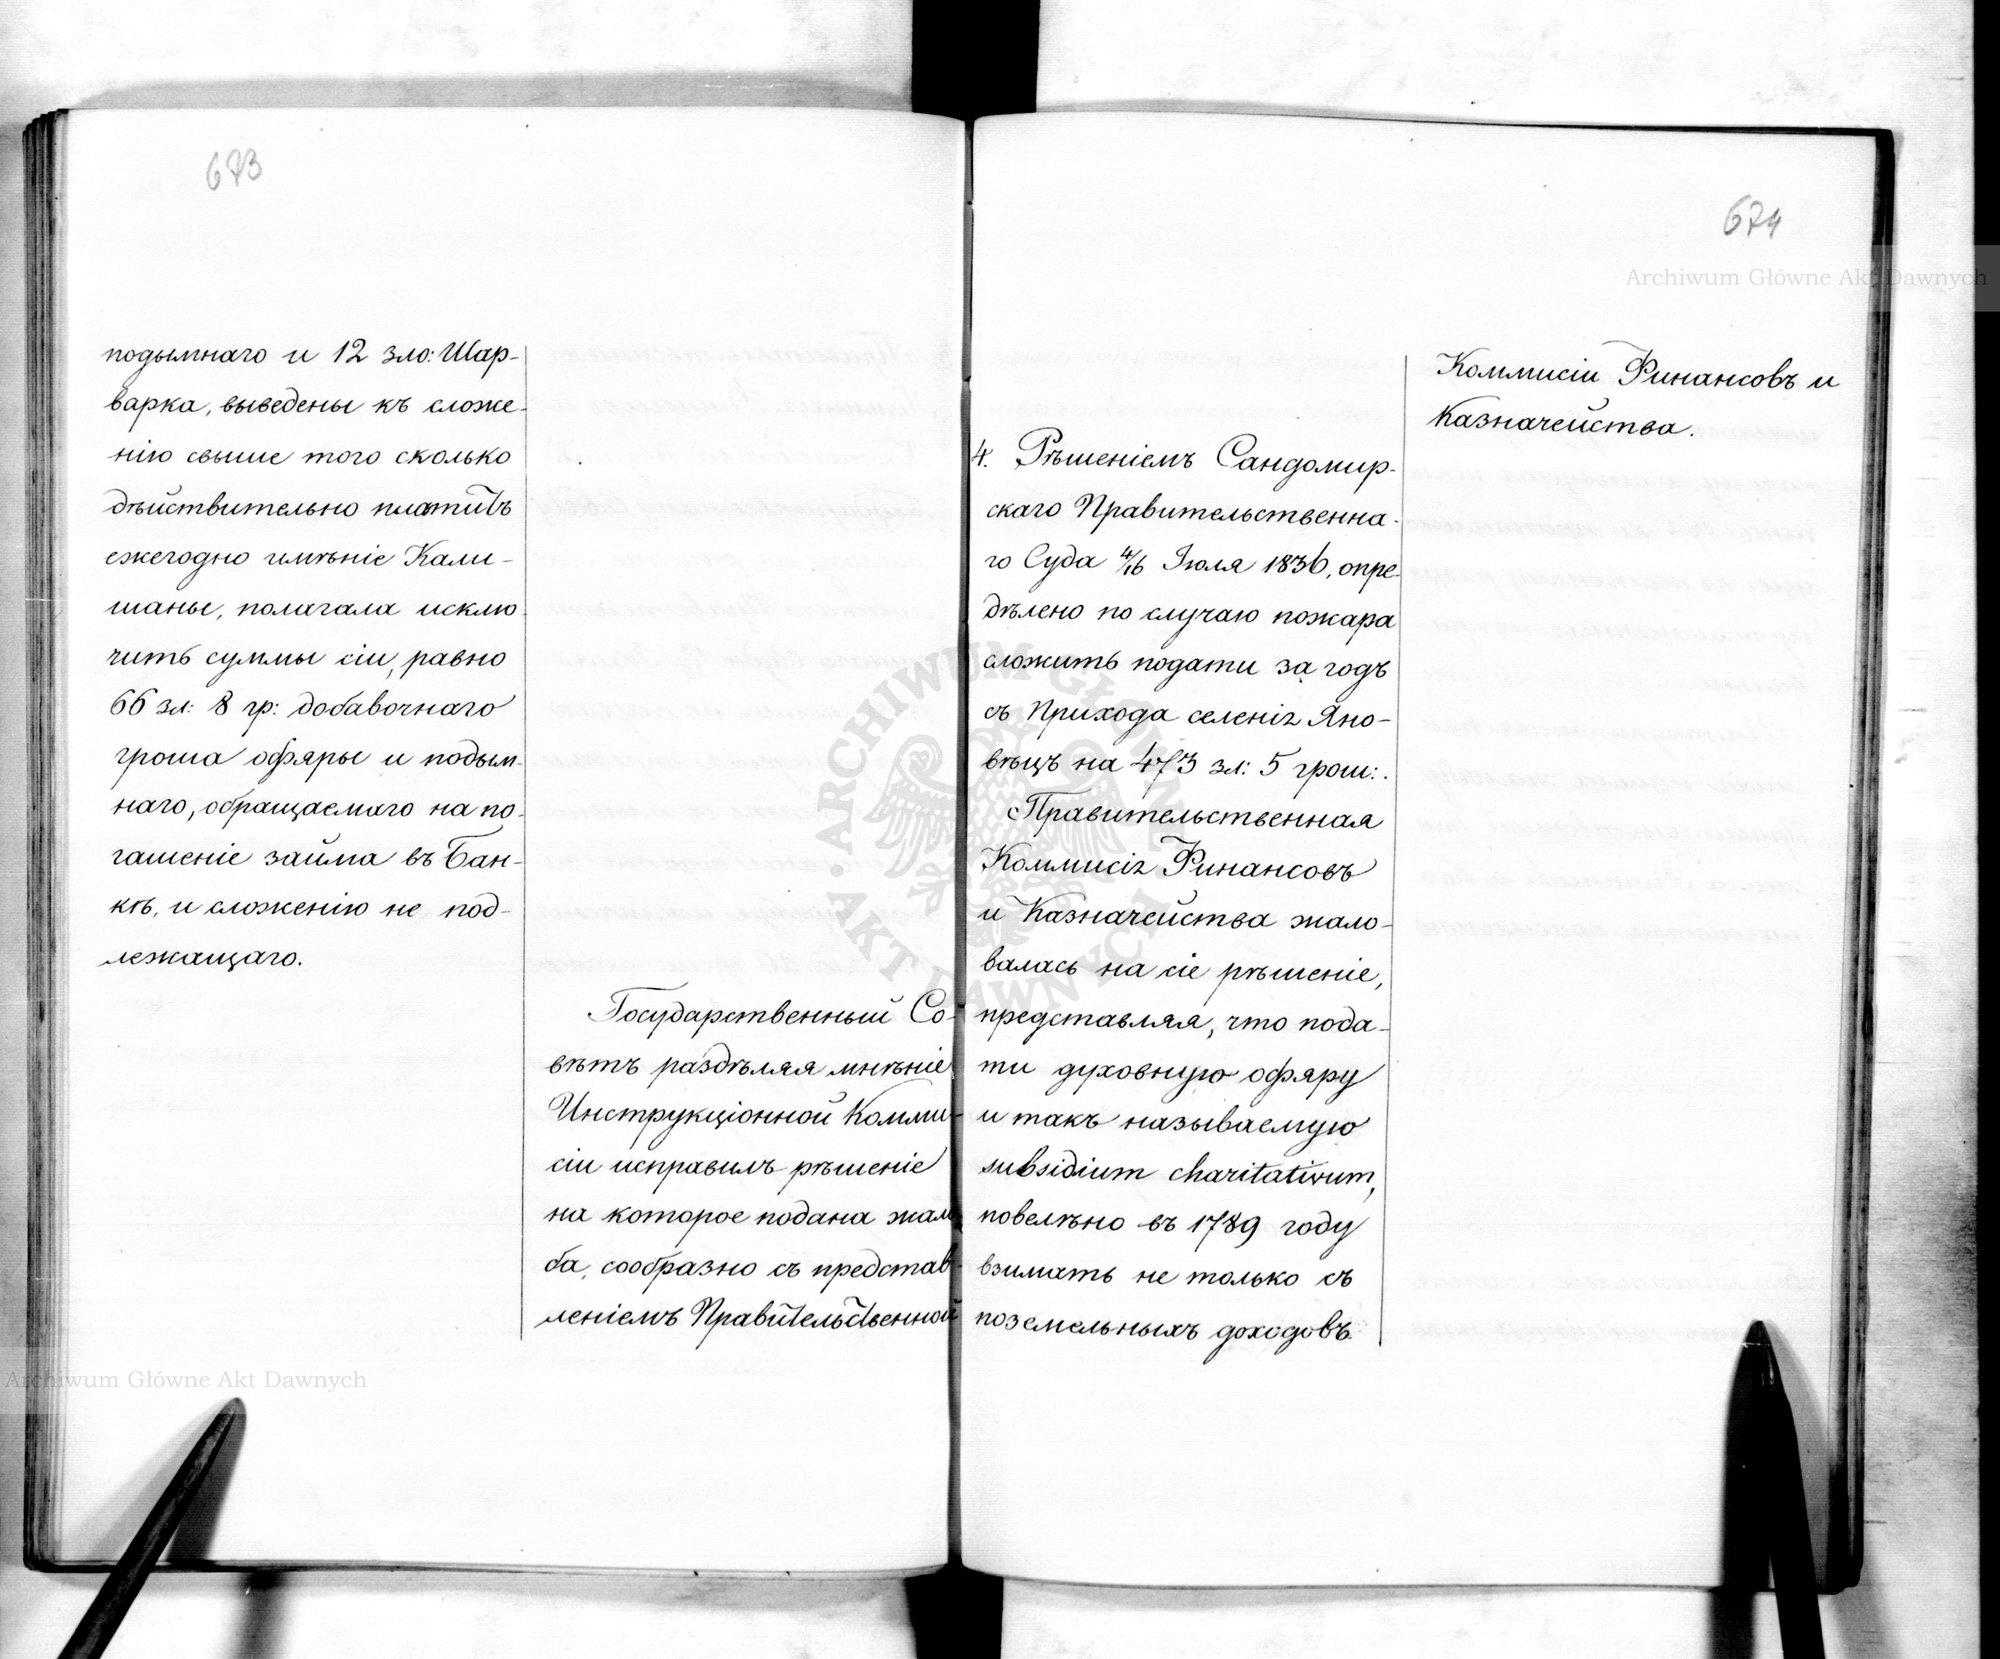 673
подымнаго и 12 зло: Шар-
варка, выведены къ сложе-
нію свыше того сколько
дѣйствительно платитъ
ежегодно имѣніе Кали-
шаны, полагала исклю-
чить суммы сіи, равно
66 зл: 8 гр: добавочнаго
гроша офяры и подым-
наго, обращаемаго на по-
гашеніе займа въ Бан-
кѣ, и сложенію не под-
лежащаго.
Государственный Со-
вѣтъ раздѣляя мнѣніе
Инструкціонной Комми-
сіи исправилъ рѣшеніе
на которое подана жало-
ба, сообразно съ представ-
леніемъ Правительственной
674
Коммисіи Финансовъ и
Казначейства.
4. Рѣшеніемъ Сандомир-
скаго Правительственна-
го Суда 4/16 Іюля 1836, опре-
дѣлено по случаю пожара
сложить подати за годъ
съ Прихода селенія Яно-
вѣцъ на 473 зл: 5 грош:.
Правительственная
Коммисія Финансовъ
и Казначейства жало-
валась на сіе рѣшеніе,
представляя, что пода-
ти духовную офяру
и такъ называемую
subsidium charitativum,
повелѣно въ 1789 году
взимать не только съ
поземельныхъ доходовъ
Archiwum Główne Akt Dawnych
Archiwum Główne Akt Dawnych
ARCHIWUM GŁÓWNE AKT DAWNYCH